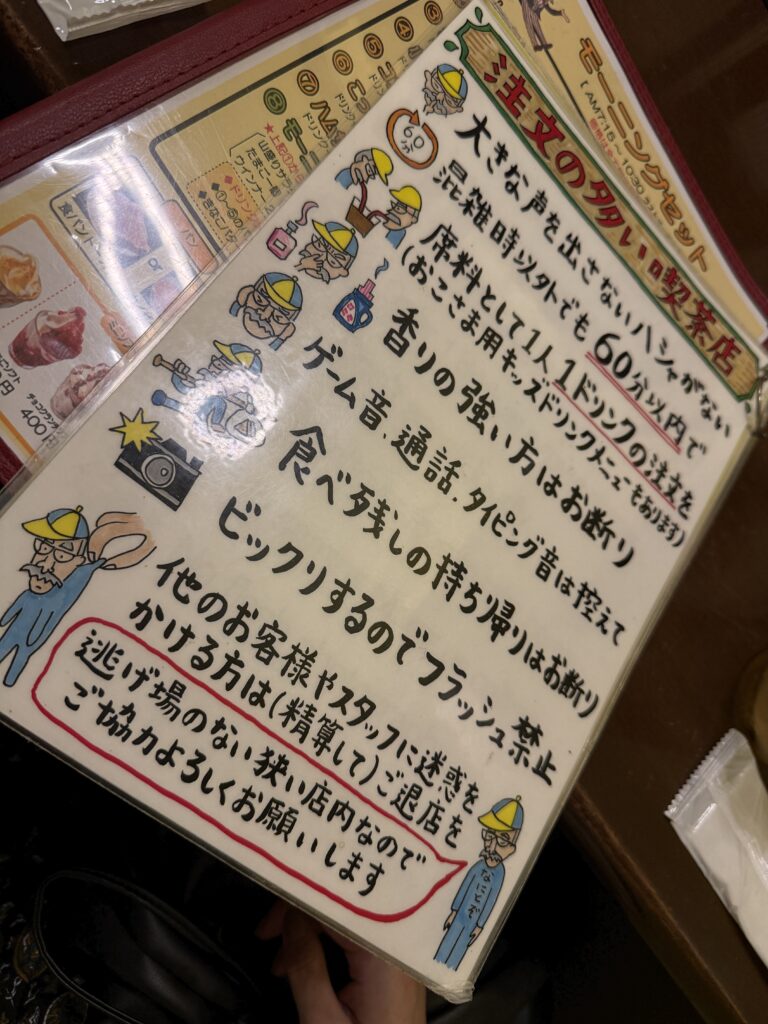 注文の多い喫茶店
大きな声を出さない ハシャがない
60分
混雑時以外でも60分以内で
席料として1人1ドリンクの注文を
(おこさま用キッズドリンクメニューもあります)
香りの強い方はお断り
ゲーム音、通話、タイピング音は控えて
食べ残しの持ち帰りはお断り
ビックリするのでフラッシュ禁止
他のお客様やスタッフに迷惑を
かける方は(精算して)ご退店を
逃げ場のない狭い店内なので
ご協力よろしくお願いします
なにとぞ
モーニングセット
[AM7:15~10:30
⑤
⑥
⑦
⑧
山盛りサラダ
400円
or